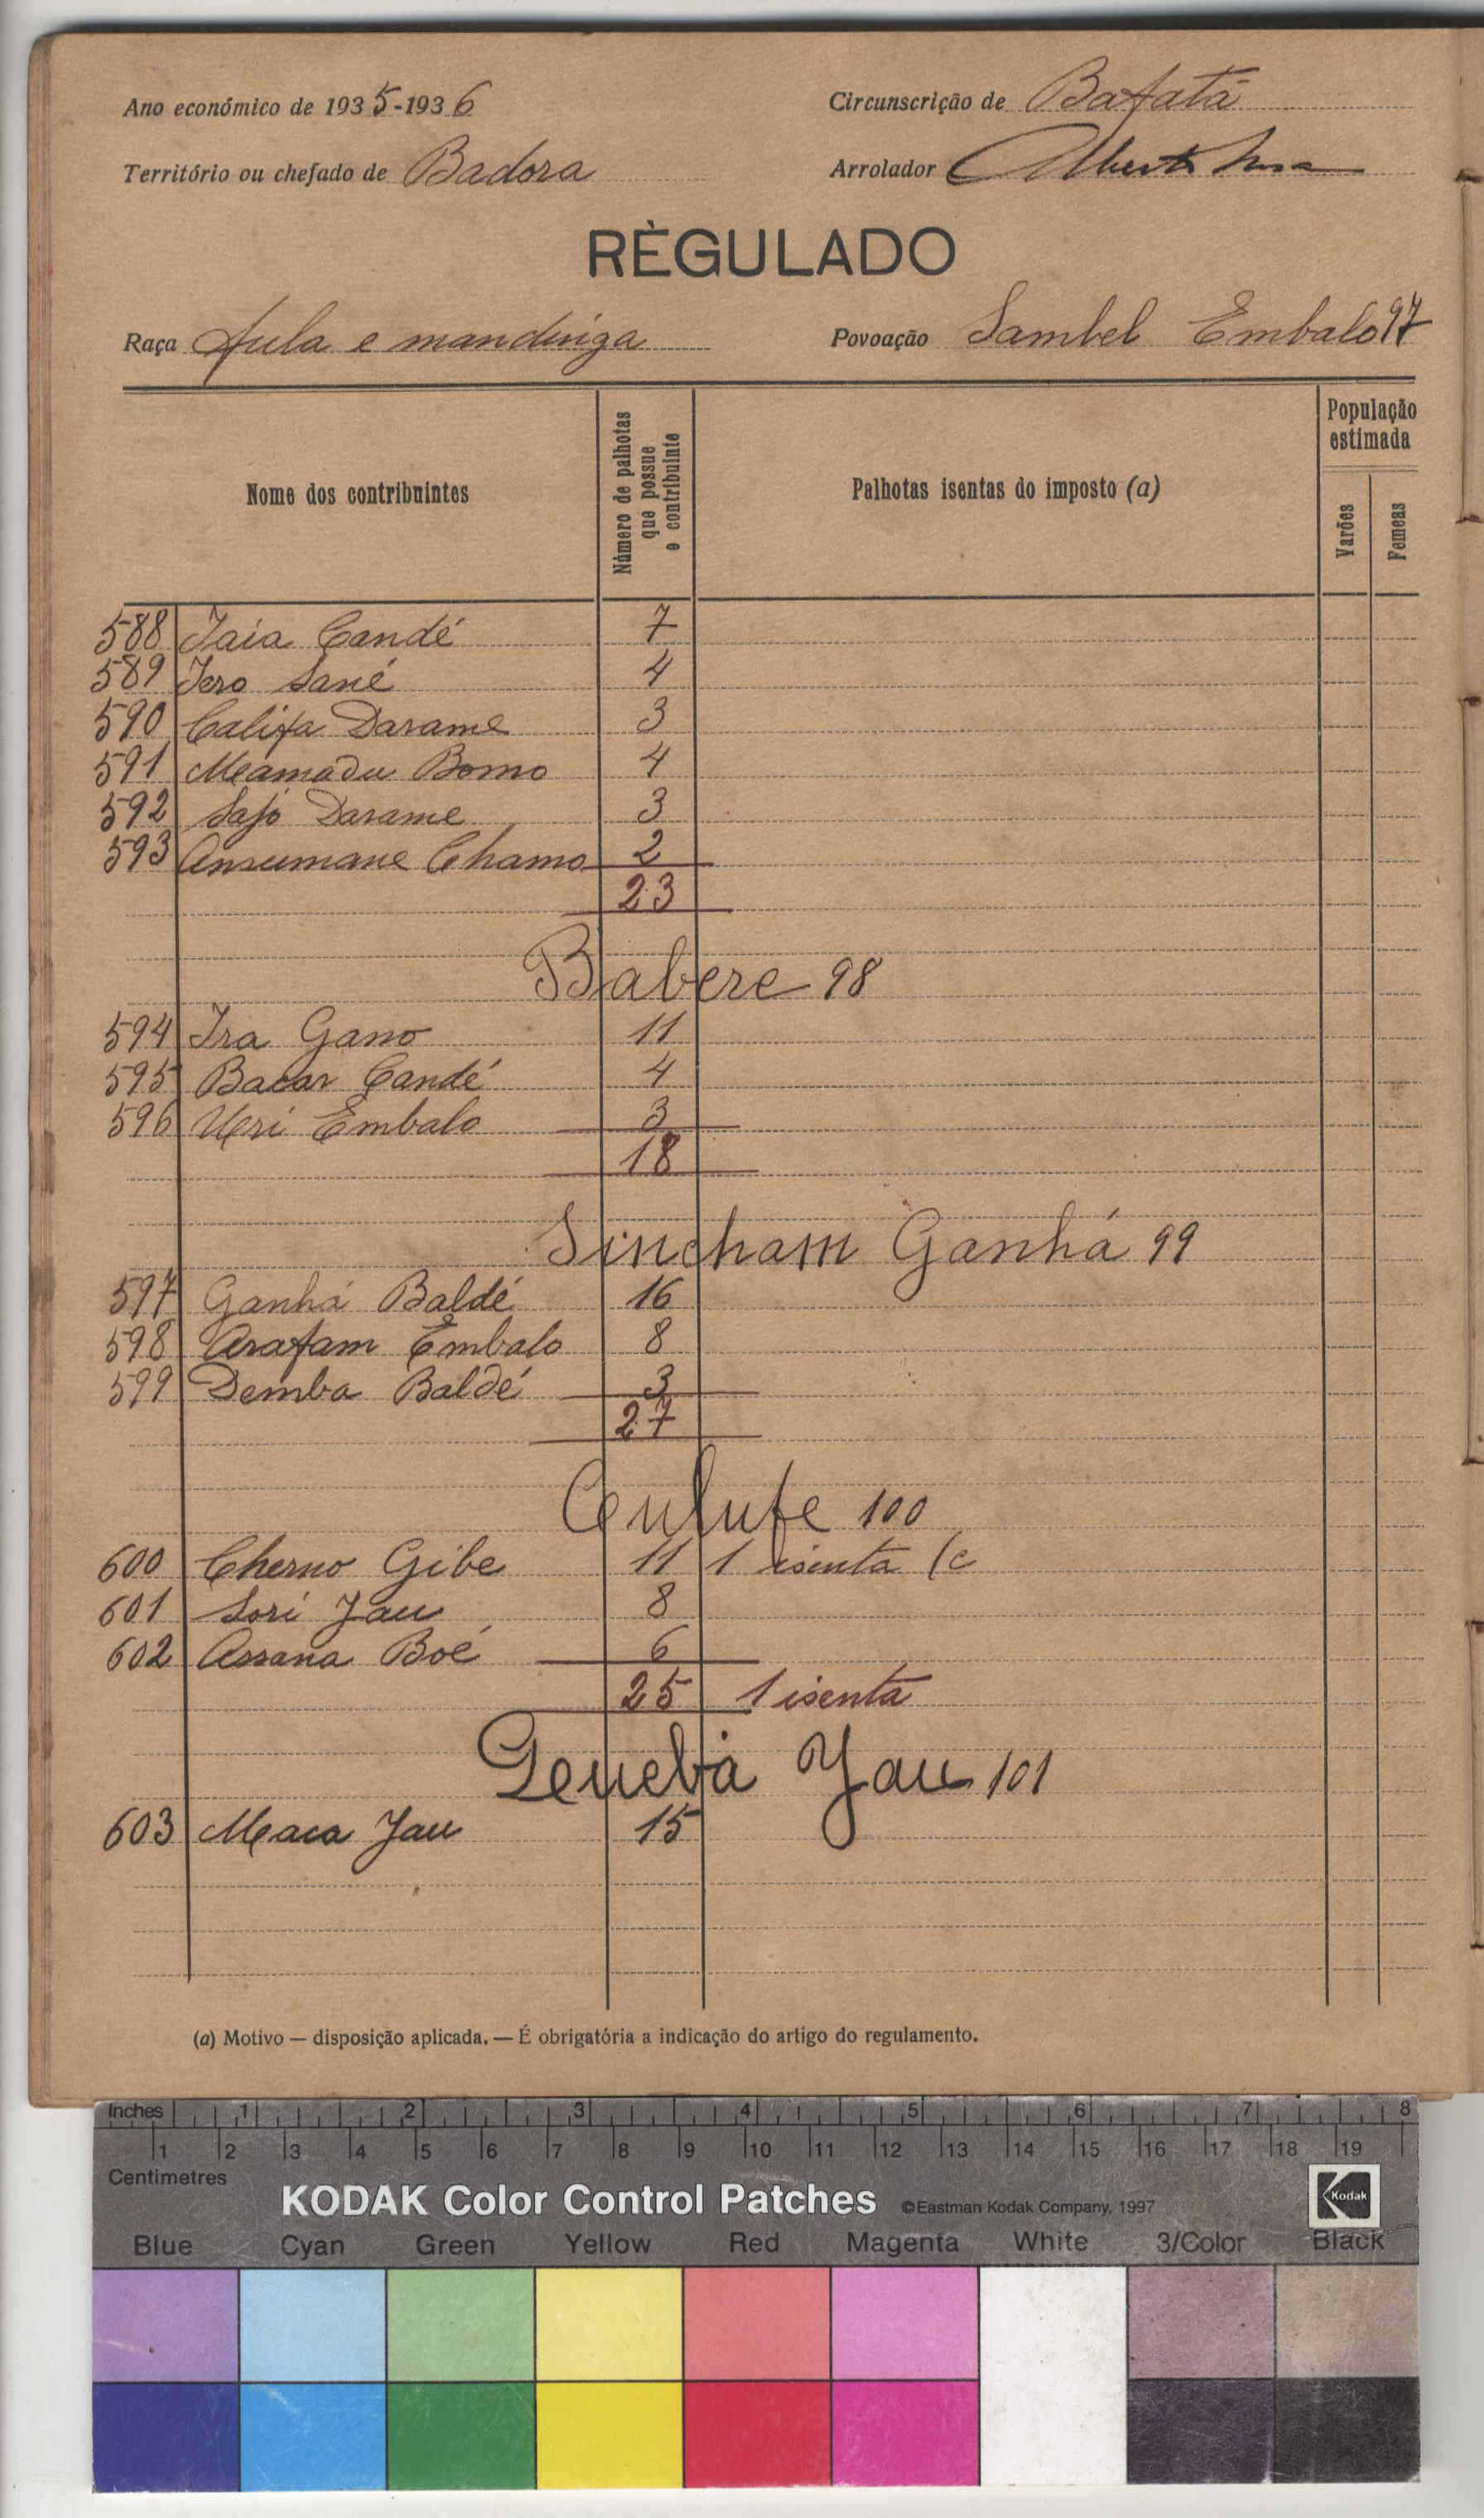 Ano económico de 1935-1936
Circunscrição de Bafatá
Território ou chefado de Badora
Arrolador Alberto
RÈGULADO
Raça Fula e mandinga
Povoação Sambel Embalo 97
Nome dos contribuintes
Número de palhotas que possue o contribuinte
Palhotas isentas do imposto (a)
População estimada
Varões
Femeas
588 Jaia Candé 7
589 Jero Sané 4
590 Califa Darame 3
591 Mamadu Bomo 4
592 Sajó Darame 3
593 Ansumane Chamo 2
23
Babere 98
594 Ira Gano 11
595 Bacar Candé 4
596 Ueri Embalo 3
18
Sincham Ganhá 99
597 Ganhá Baldé 16
598 Arafam Embalo 8
599 Demba Baldé 3
27
Culufe 100
600 Cherno Gibe 11 1 isenta (c
601 Sori Jau 8
602 Assana Boé 6
25 1 isenta
Geneba Jau 101
603 Maca Jau 15
(a) Motivo — disposição aplicada. — É obrigatória a indicação do artigo do regulamento.
Inches 1 2 3 4 5 6 7 8
1 2 3 4 5 6 7 8 9 10 11 12 13 14 15 16 17 18 19
Centimetres
KODAK Color Control Patches ©Eastman Kodak Company, 1997 Kodak
Blue Cyan Green Yellow Red Magenta White 3/Color Black